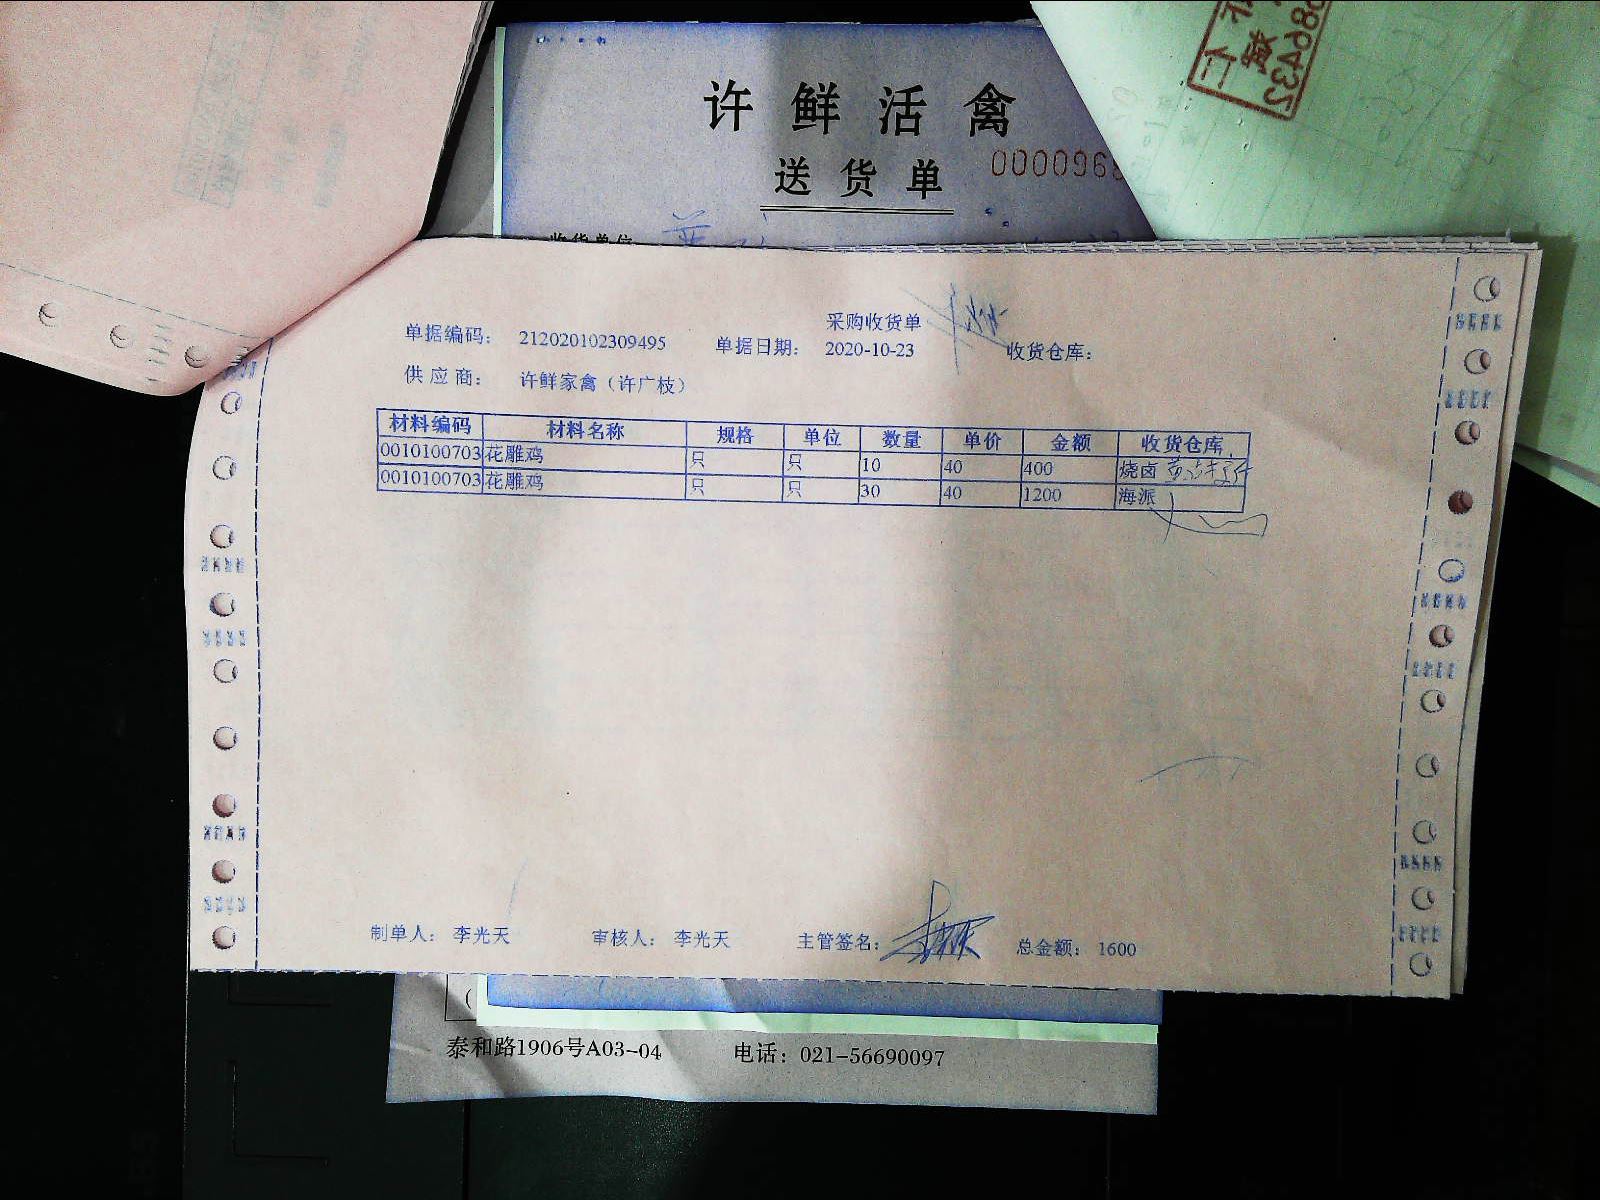 许鲜活禽
送货单 0000968
收货单位
采购收货单
单据编码： 212020102309495 单据日期： 2020-10-23 收货仓库：
供应商： 许鲜家禽（许广枝）
材料编码 材料名称 规格 单位 数量 单价 金额 收货仓库
0010100703 花雕鸡 只 只 10 40 400 烧卤
0010100703 花雕鸡 只 只 30 40 1200 海派
制单人： 李光天 审核人： 李光天 主管签名： 总金额： 1600
泰和路1906号A03-04 电话：021-56690097